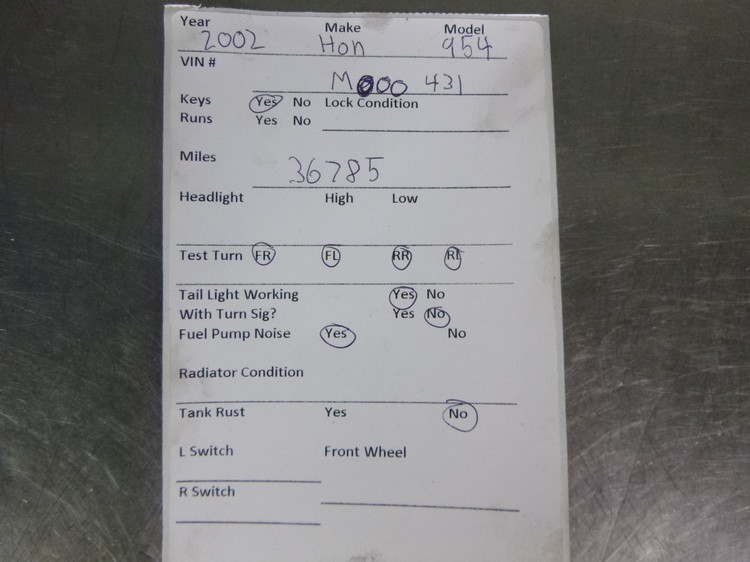 Year Make Model
2002 Hon 954
VIN #
M000 431
Keys Yes No Lock Condition
Runs Yes No
Miles 36785
Headlight High Low
Test Turn FR FL RR RL
Tail Light Working Yes No
With Turn Sig? Yes No
Fuel Pump Noise Yes No
Radiator Condition
Tank Rust Yes No
L Switch Front Wheel
R Switch